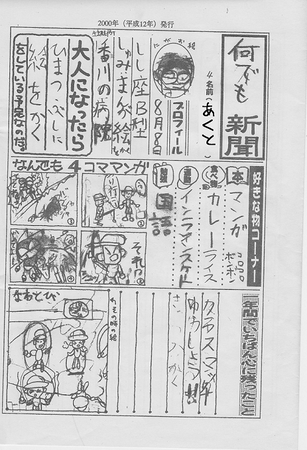 2000年(平成12年)発行
何でも新聞
名前(あくと)
プロフィール
8月7日
しし座B型
しゅみ・まんが絵かき
香川の病院
大人になったら
ひまつぶしに
絵をかく
をしている予定なのだ。
好きな物コーナー
本
マンガ
コロコロ
ボンボン
食べ物
カレーライス
遊び
インラインスケート
勉強
国語
なんでも4コママンガ
①
②
③
④
それ!?
一年間でいちばん心に残ったこと
クラスマッチ
なわとび
その時の絵